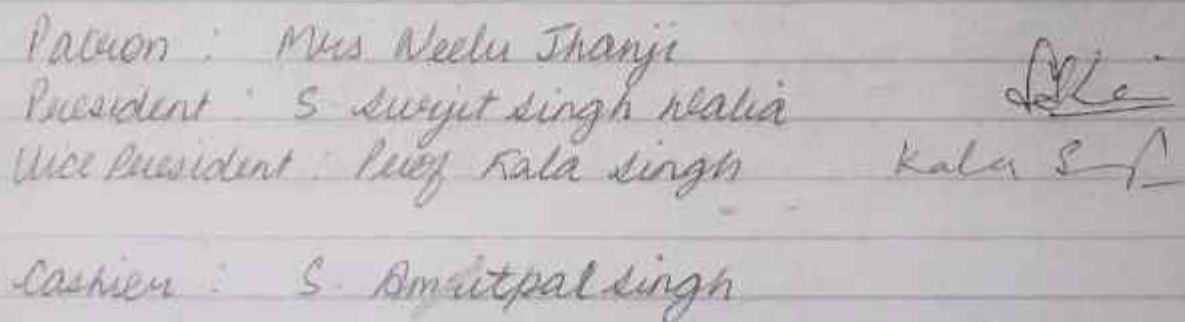 Patron : Mrs Neelu Jhanji
President : S Surjit Singh Walia
Vice President : Prof Kala Singh Kala S
Cashier : S. Amritpal Singh